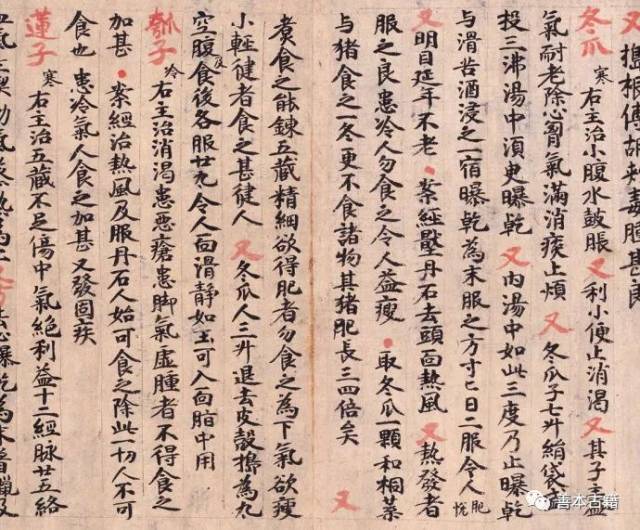 又擣根傅胡刺毒腫甚良
冬瓜 寒 右主治小腹水鼓脹 又利小便止消渴 又其子主益
氣耐老除心胷氣滿消痰止煩 又冬瓜子七升絹袋
投三沸湯中湏臾曝乾 又內湯中如此三度乃止曝乾
与滑苦酒浸之一宿曝乾為末服之方寸匕日二服令人肥悅
又明目延年不老 ・案經壓丹石去頭面熱風 又熱發者
服之良患冷人勿食之令人益瘦 ・取冬瓜一顆和桐葉
与猪食之一冬更不食諸物其猪肥長三四倍矣 又
煮食之能鍊五藏精細欲得肥者勿食之為下氣欲瘦
小輕徤者食之甚徤人 又冬瓜人三升退去皮殼擣為丸
空腹及食後各服廿丸令人面滑静如玉可入面脂中用
瓠子 冷 右主治消渴患惡瘡患脚氣虛腫者不得食之
加甚 ・案經治熱風及服丹石人始可食之除此一切人不可
食也 患冷氣人食之加甚 又發固疾
蓮子 寒 右主治五藏不足傷中氣絕利益十二經脉廿五絡
善本古籍